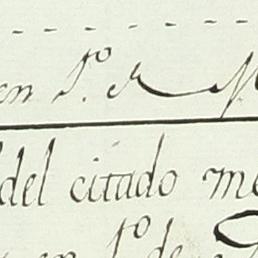 en 1º. de
del citado me
en 1º de